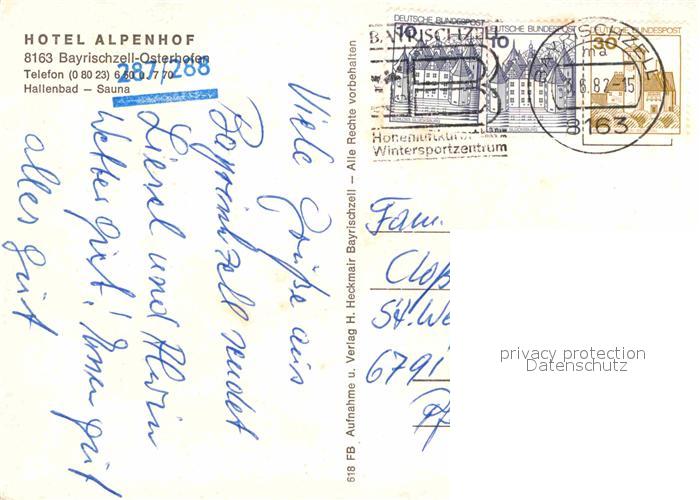 HOTEL ALPENHOF
8163 Bayrischzell-Osterhofen
Telefon (0 80 23) 6 50 u. 7 70
Hallenbad – Sauna
287/288
Viele Grüße aus
Bayrischzell sendet
Liesel und Alwin
Wetter gut! Essen gut
alles gut
618 FB Aufnahme u. Verlag H. Heckmair Bayrischzell – Alle Rechte vorbehalten
DEUTSCHE BUNDESPOST
10
DEUTSCHE BUNDESPOST
10
DEUTSCHE BUNDESPOST
30
BAYRISCHZELL
Höhenluftkurort
Wintersportzentrum
BAYRISCHZELL
ma
8163
Fam.
Cloß
St. We
6791
privacy protection
Datenschutz